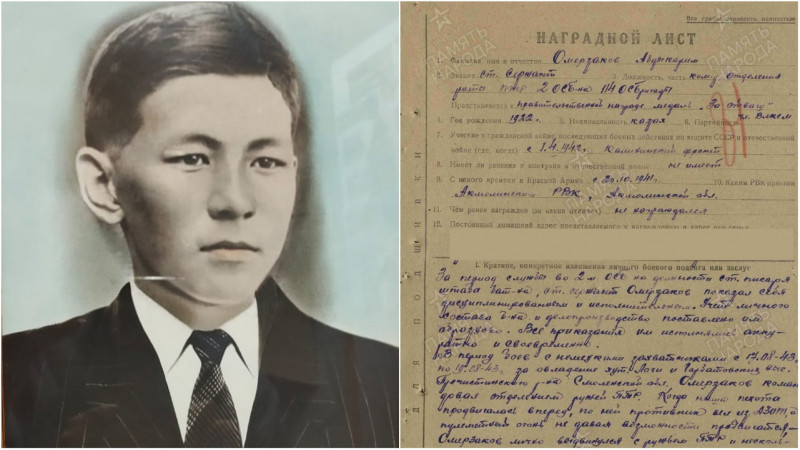 Все графы заполнять полностью
НАГРАДНОЙ ЛИСТ
1. Фамилия, имя и отчество Омерзаков Абдыкарим
2. Звание ст. Сержант 3. Должность, часть ком. отделения
роты ПТР 2 ОСБ-на 114 ОСбригады
Представляется к правительственной награде медаль "За отвагу"
4. Год рождения 1922 г. 5. Национальность казах 6. Партийность чл. Влксм
7. Участие в гражданской войне, последующих боевых действиях по защите СССР и отечественной
войне (где, когда) с 1.4.1942 г. Калининский фронт
8. Имеет ли ранения и контузии в отечественной войне не имеет
9. С какого времени в Красной Армии с 20.10.1941 10. Каким РВК призван
Акмолинским РВК, Акмолинской обл.
11. Чем ранее награжден (за какие отличия) не награждался
12. Постоянный домашний адрес представляемого к награждению и адрес его семьи
I. Краткое, конкретное изложение личного боевого подвига или заслуг
За период службы во 2-м ОСБ на должности ст. писаря
штаба бат-на, ст. сержант Омерзаков показал себя
дисциплинированным и исполнительным. Учет личного
состава б-на и делопроизводство поставлено им
образцово. Все приказания им исполнялись акку-
ратно и своевременно.
В период боев с немецкими захватчиками с 17.08-43
по 19.08-43, за овладение хут. Логи и Горбатовских выс.
Пречистинского р-на Смоленской обл. Омерзаков коман-
довал отделением ружей ПТР. Когда наша пехота
продвигалась вперед, по ней противник вел из ДЗОТа
пулеметный огонь не давая возможности продвигаться
Омерзаков лично выдвинулся с ружьем ПТР и несколь-
ПАМЯТЬ
НАРОДА